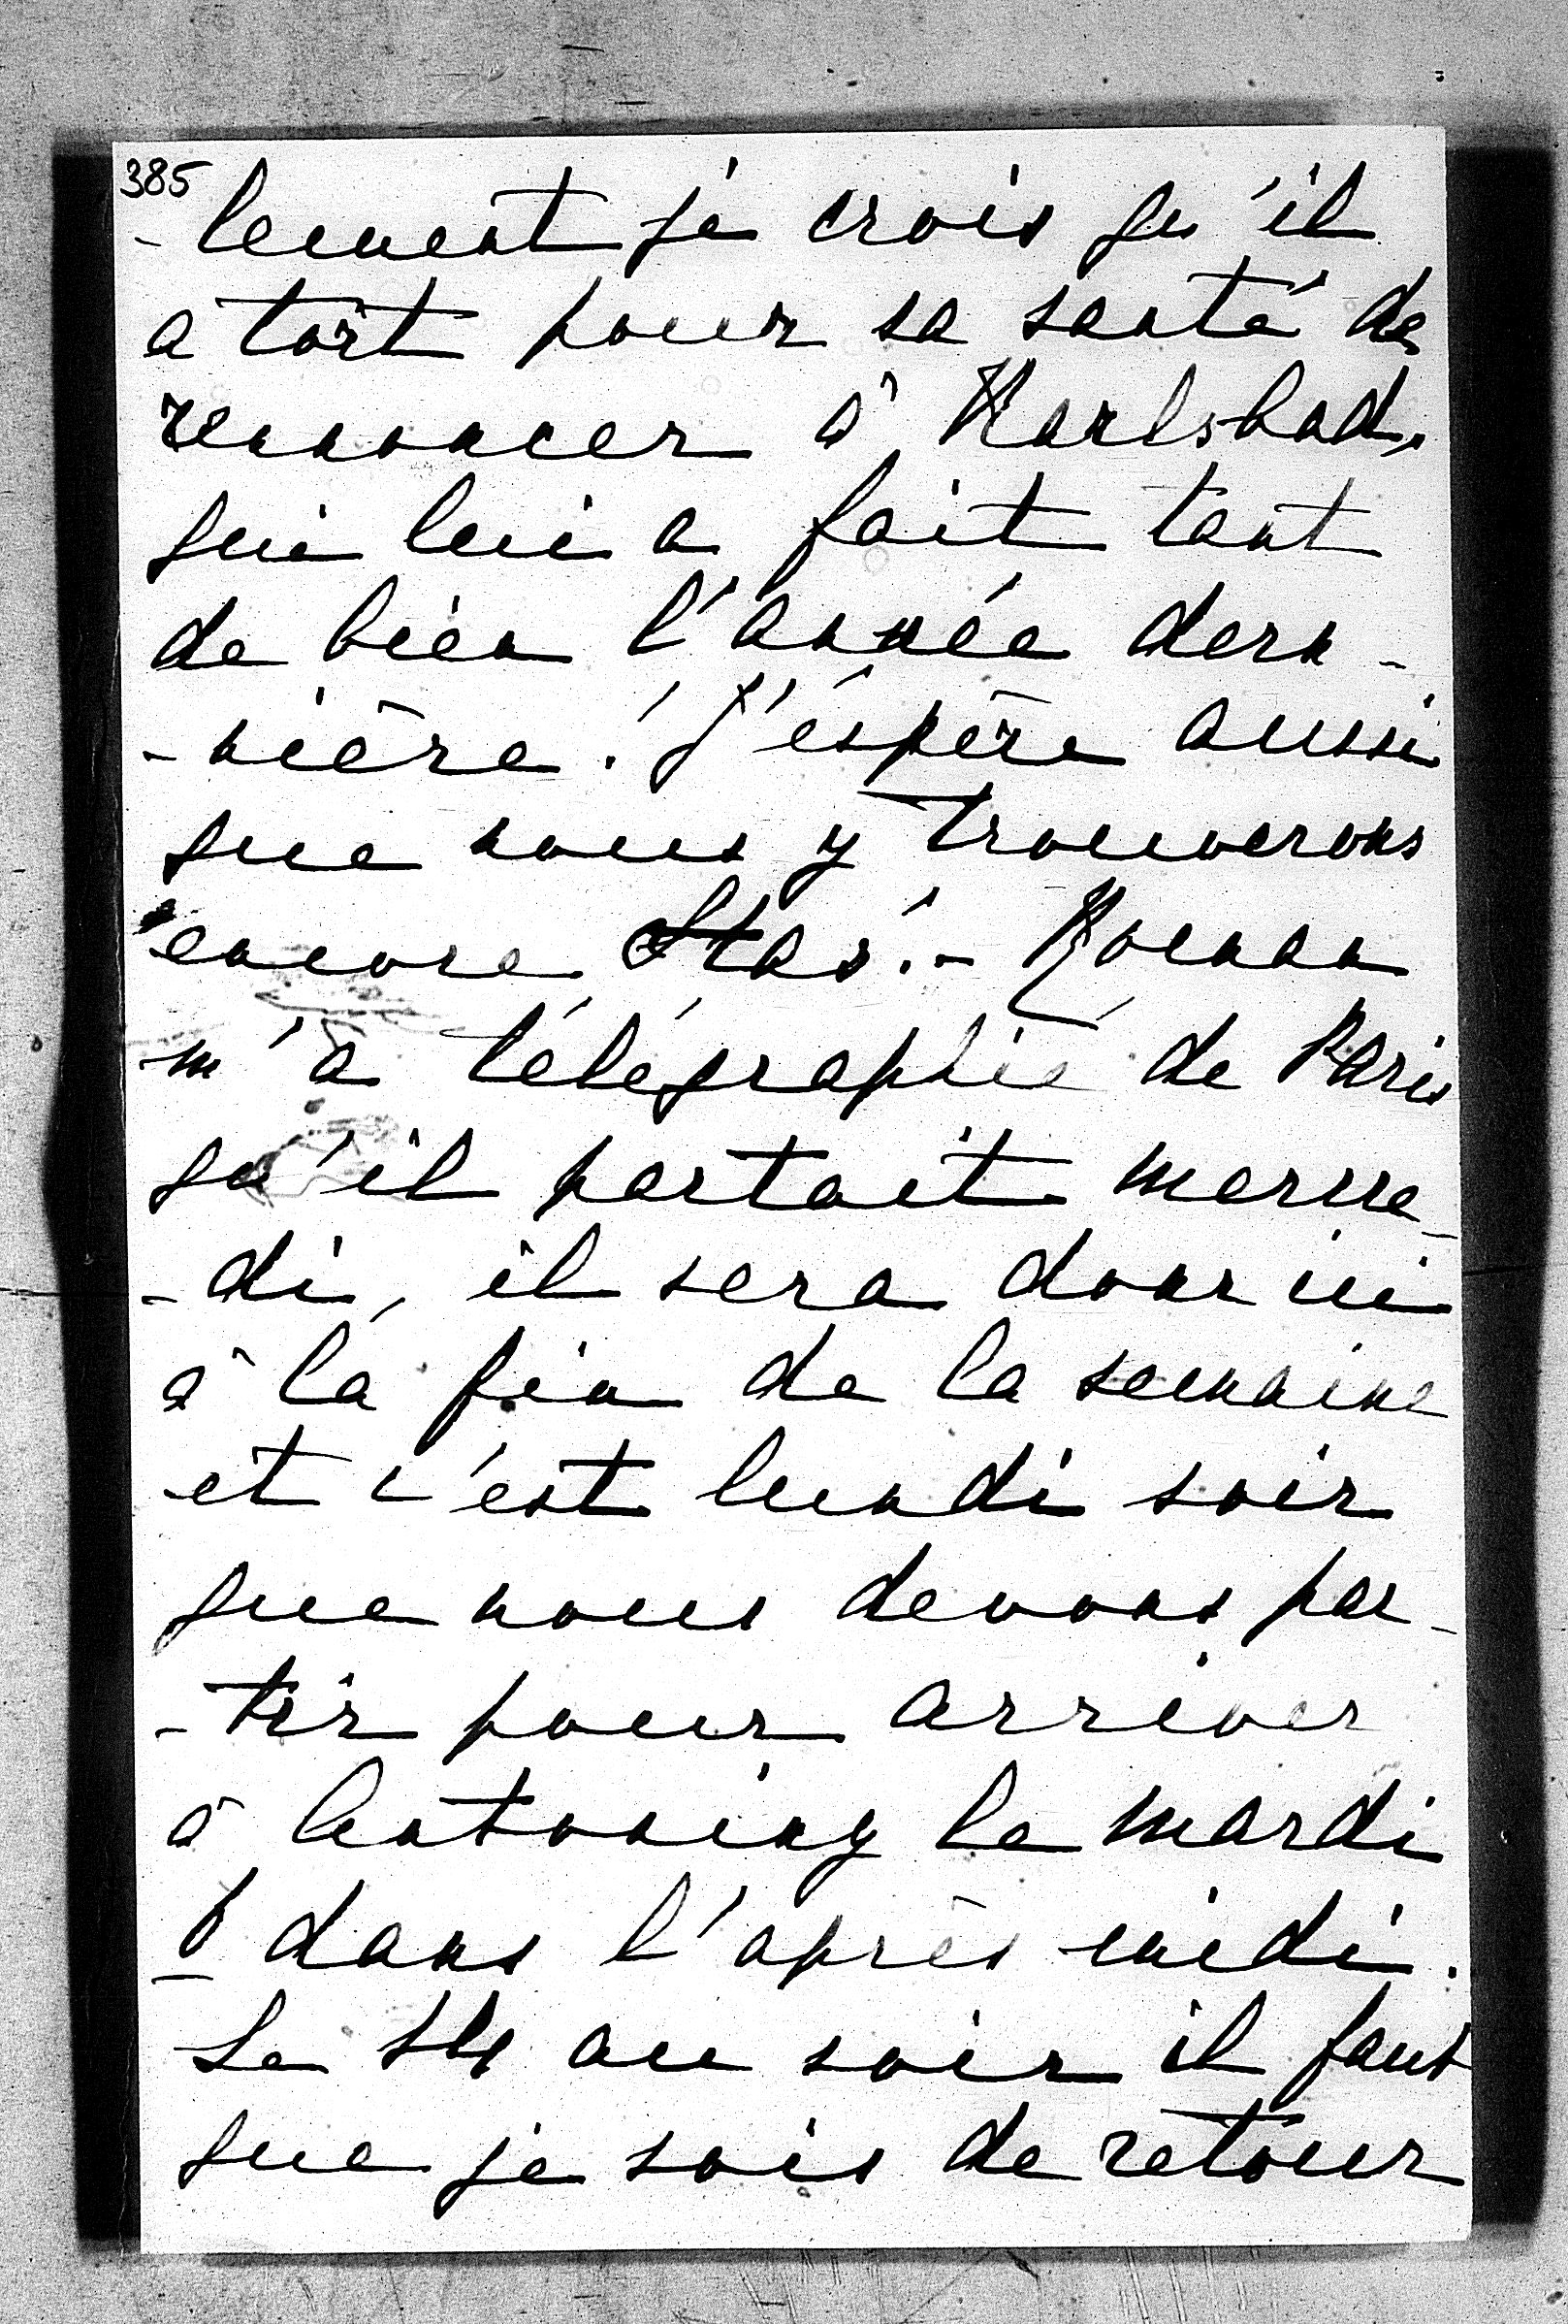 385
-lement je crois qu'il
a tort pour sa santé de
renoncer à Karlsbad,
qui lui a fait tant
de bien l'année dern-
-nière. J'éspère aussi
que nous y trouverons
encore Stas.- Roman
m'a télégraphié de Paris
qu'il partait mercre-
-di, il sera donc ici
à la fin de la semaine
et c'est lundi soir
que nous devons par-
-tir pour arriver
à Antoniny le mardi
dans l'après midi.
Le 14 au soir il faut
que je sois de retour